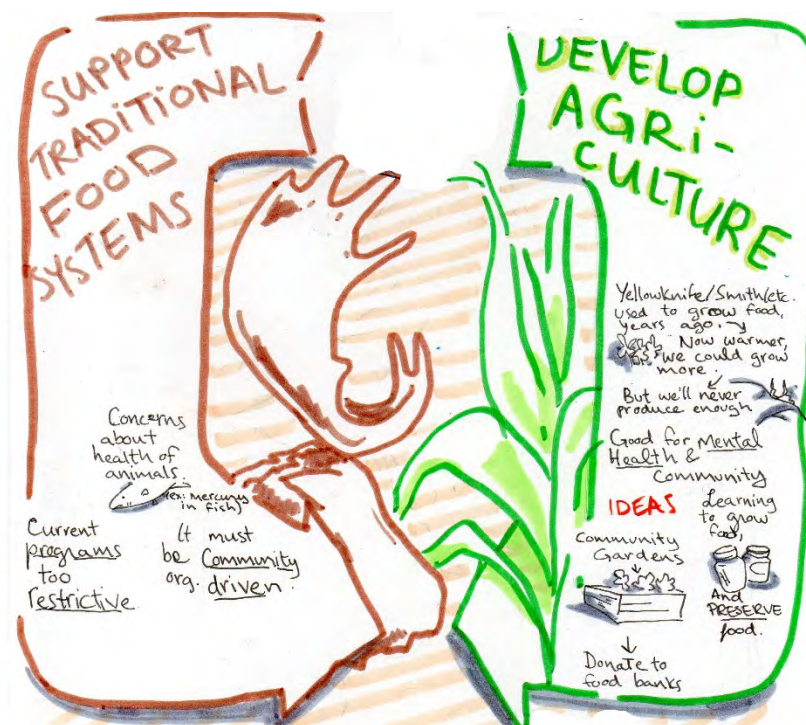 SUPPORT
TRADITIONAL
FOOD
SYSTEMS
Concerns
about
health of
animals
(ex: mercury
in fish)
Current
programs
too
restrictive
It must
be Community
org. driven.
DEVELOP
AGRI-
CULTURE
Yellowknife/Smith/etc.
used to grow food,
years ago.
Now warmer,
we could grow
more.
But we'll never
produce enough
Good for Mental
Health &
Community
IDEAS
Community
Gardens
Donate to
food banks
Learning
to grow
food,
And
PRESERVE
food.